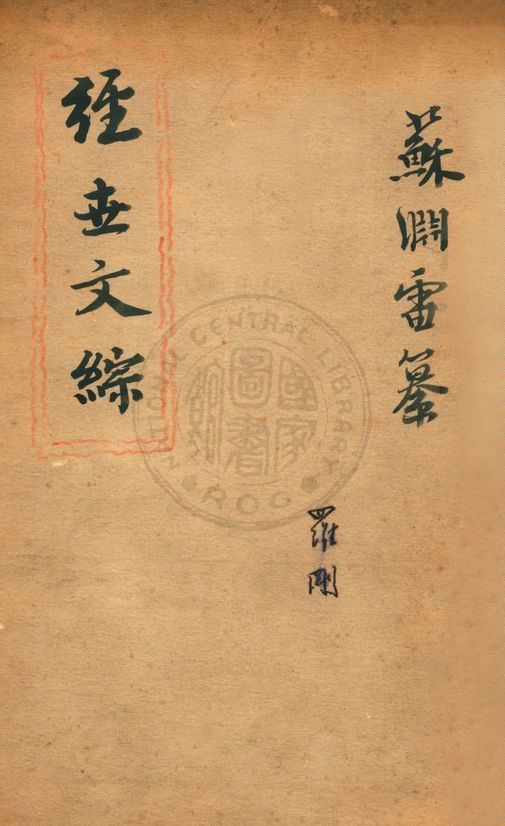 蘇淵雷纂
經世文綜
羅剛
NATIONAL CENTRAL LIBRARY
國家圖書館
ROC